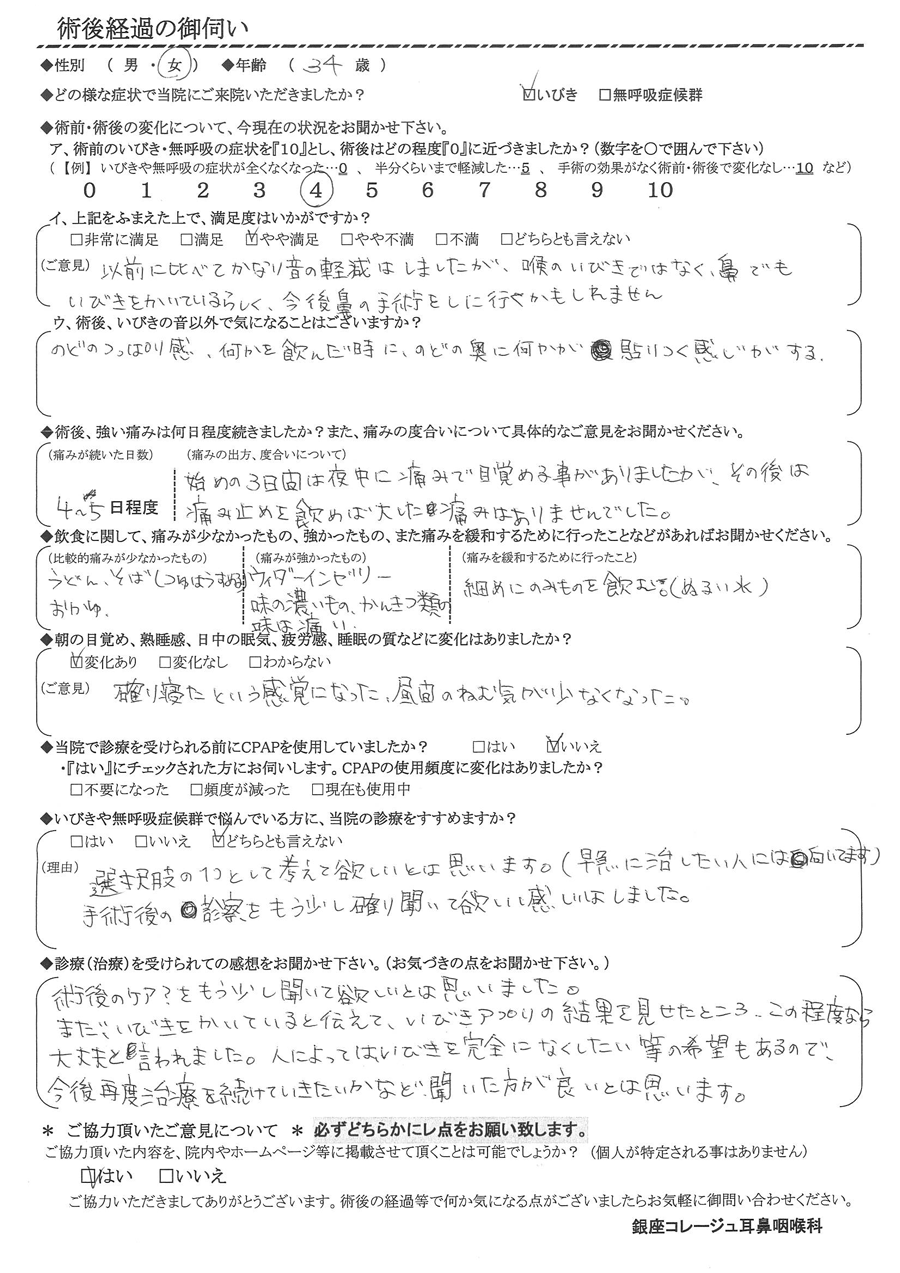 術後経過の御伺い
◆性別 （ 男 ・ 女 ） ◆年齢 （ 34 歳 ）
◆どの様な症状で当院にご来院いただきましたか？ ☑いびき □無呼吸症候群
◆術前・術後の変化について、今現在の状況をお聞かせ下さい。
ア、術前のいびき・無呼吸の症状を『10』とし、術後はどの程度『0』に近づきましたか？（数字を〇で囲んで下さい）
（【例】 いびきや無呼吸の症状が全くなくなった…0 、 半分くらいまで軽減した…5 、 手術の効果がなく術前・術後で変化なし…10 など）
0 1 2 3 4 5 6 7 8 9 10
イ、上記をふまえた上で、満足度はいかがですか？
□非常に満足 □満足 ☑やや満足 □やや不満 □不満 □どちらとも言えない
（ご意見） 以前に比べてかなり音の軽減はしましたが、喉のいびきではなく、鼻でも
いびきをかいているらしく、今後鼻の手術をしに行くかもしれません
ウ、術後、いびきの音以外で気になることはございますか？
のどのつっぱり感、何かを飲んだ時に、のどの奥に何かが貼りつく感じがする．
◆術後、強い痛みは何日程度続きましたか？また、痛みの度合いについて具体的なご意見をお聞かせください。
（痛みが続いた日数） （痛みの出方、度合いについて）
始めの3日間は夜中に痛みで目覚める事がありましたが、その後は
4～5 日程度 痛み止めを飲めば大した痛みはありませんでした。
◆飲食に関して、痛みが少なかったもの、強かったもの、また痛みを緩和するために行ったことなどがあればお聞かせください。
（比較的痛みが少なかったもの） （痛みが強かったもの） （痛みを緩和するために行ったこと）
うどん、そば（つゆはうすめる） ウィダーインゼリー 細めにのみものを飲む（ぬるい水）
おかゆ． 味の濃いもの、かんきつ類の
味は痛い．
◆朝の目覚め、熟睡感、日中の眠気、疲労感、睡眠の質などに変化はありましたか？
☑変化あり □変化なし □わからない
（ご意見） 確り寝たという感覚になった、昼間のねむ気が少なくなった。
◆当院で診療を受けられる前にCPAPを使用していましたか？ □はい ☑いいえ
・『はい』にチェックされた方にお伺いします。CPAPの使用頻度に変化はありましたか？
□不要になった □頻度が減った □現在も使用中
◆いびきや無呼吸症候群で悩んでいる方に、当院の診療をすすめますか？
□はい □いいえ ☑どちらとも言えない
（理由） 選択肢の1つとして考えて欲しいとは思います。（早急に治したい人には向いてます）
手術後の診察をもう少し確り聞いて欲しい感じはしました。
◆診療（治療）を受けられての感想をお聞かせ下さい。（お気づきの点をお聞かせ下さい。）
術後のケア？をもう少し聞いて欲しいとは思いました。
まだ、いびきをかいていると伝えて、いびきアプリの結果を見せたところ、この程度なら
大丈夫と言われました。人によってはいびきを完全になくしたい等の希望もあるので、
今後再度治療を続けていきたいかなど、聞いた方が良いとは思います。
＊ ご協力頂いたご意見について ＊ 必ずどちらかにレ点をお願い致します。
ご協力頂いた内容を、院内やホームページ等に掲載させて頂くことは可能でしょうか？ （個人が特定される事はありません）
☑はい □いいえ
ご協力いただきましてありがとうございます。術後の経過等で何か気になる点がございましたらお気軽に御問い合わせください。
銀座コレージュ耳鼻咽喉科